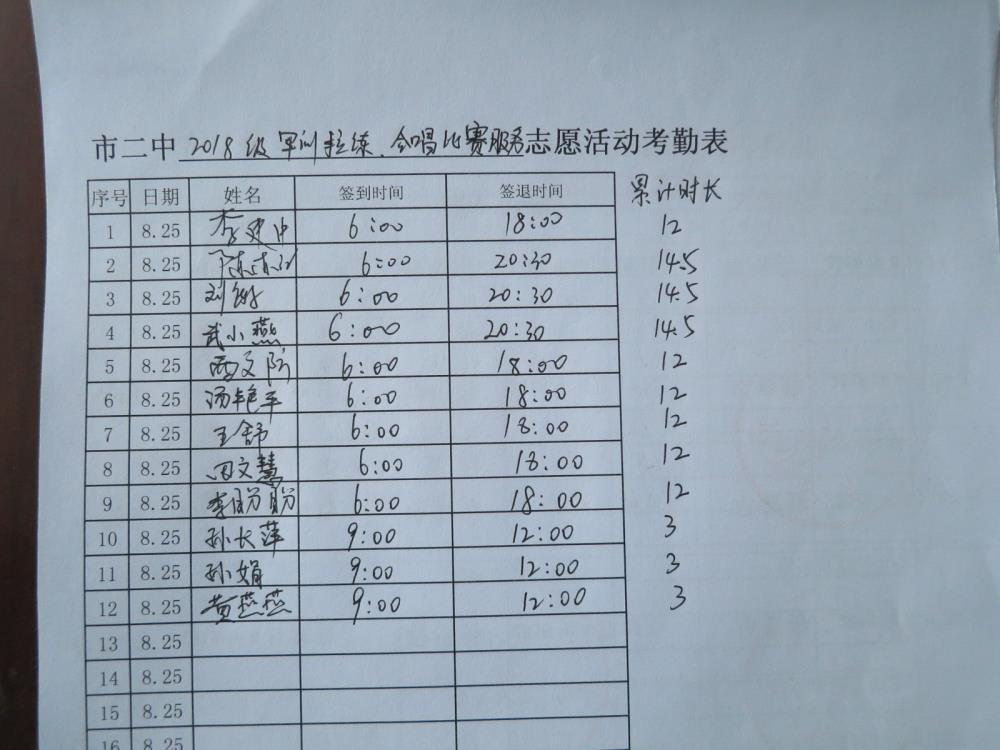 市二中2018级军训拉练、合唱比赛服务志愿活动考勤表
序号 日期 姓名 签到时间 签退时间 累计时长
1 8.25 李建中 6:00 18:00 12
2 8.25 6:00 20:30 14.5
3 8.25 刘 6:00 20:30 14.5
4 8.25 武小燕 6:00 20:30 14.5
5 8.25 文 6:00 18:00 12
6 8.25 汤艳平 6:00 18:00 12
7 8.25 王舒 6:00 18:00 12
8 8.25 田文慧 6:00 18:00 12
9 8.25 李盼盼 6:00 18:00 12
10 8.25 孙长萍 9:00 12:00 3
11 8.25 孙娟 9:00 12:00 3
12 8.25 黄燕燕 9:00 12:00 3
13 8.25
14 8.25
15 8.25
16 8.25